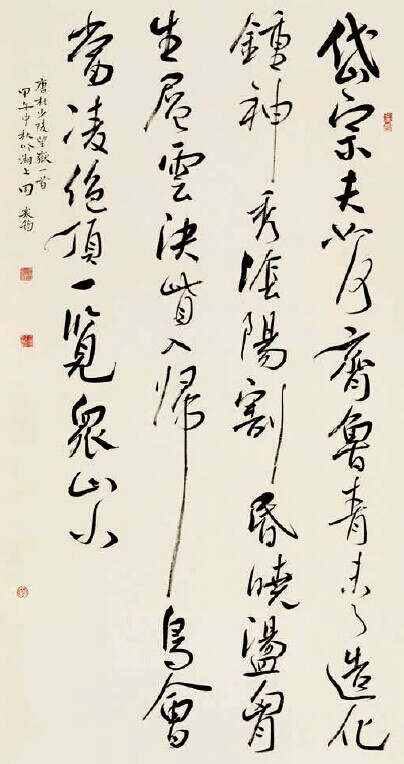 岱宗夫如何齊魯青未了造化
鍾神秀陰陽割昏曉盪胷
生層雲決眥入歸鳥會
當凌絕頂一覽眾山小
唐杜少陵望嶽一首
甲午中秋